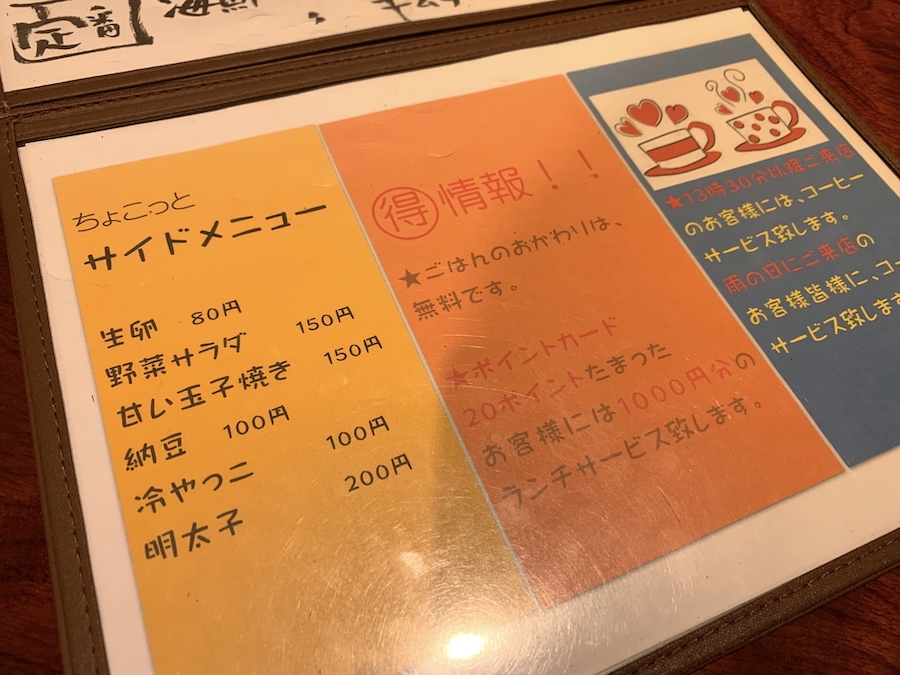 定番
ちょこっと
サイドメニュー
生卵 80円
野菜サラダ 150円
甘い玉子焼き 150円
納豆 100円
冷やっこ 100円
明太子 200円
得情報！！
★ごはんのおかわりは、
無料です。
★ポイントカード
20ポイントたまった
お客様には1000円分の
ランチサービス致します。
★13時30分以降ご来店
のお客様には、コーヒー
サービス致します。
雨の日にご来店の
お客様皆様に、コー
サービス致します